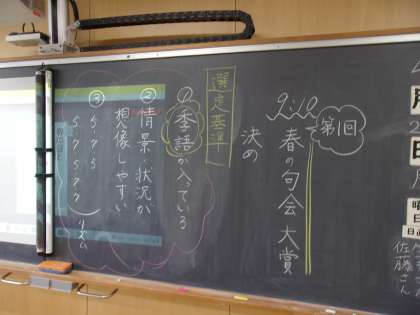 9:10〜
第1回
春の句会大賞
決め
選定基準
①季語が入っている
②情景・状況が
想像しやすい
③5・7・5
5・7・5・7・7
リズム
月
日
曜日
日直
佐藤さん